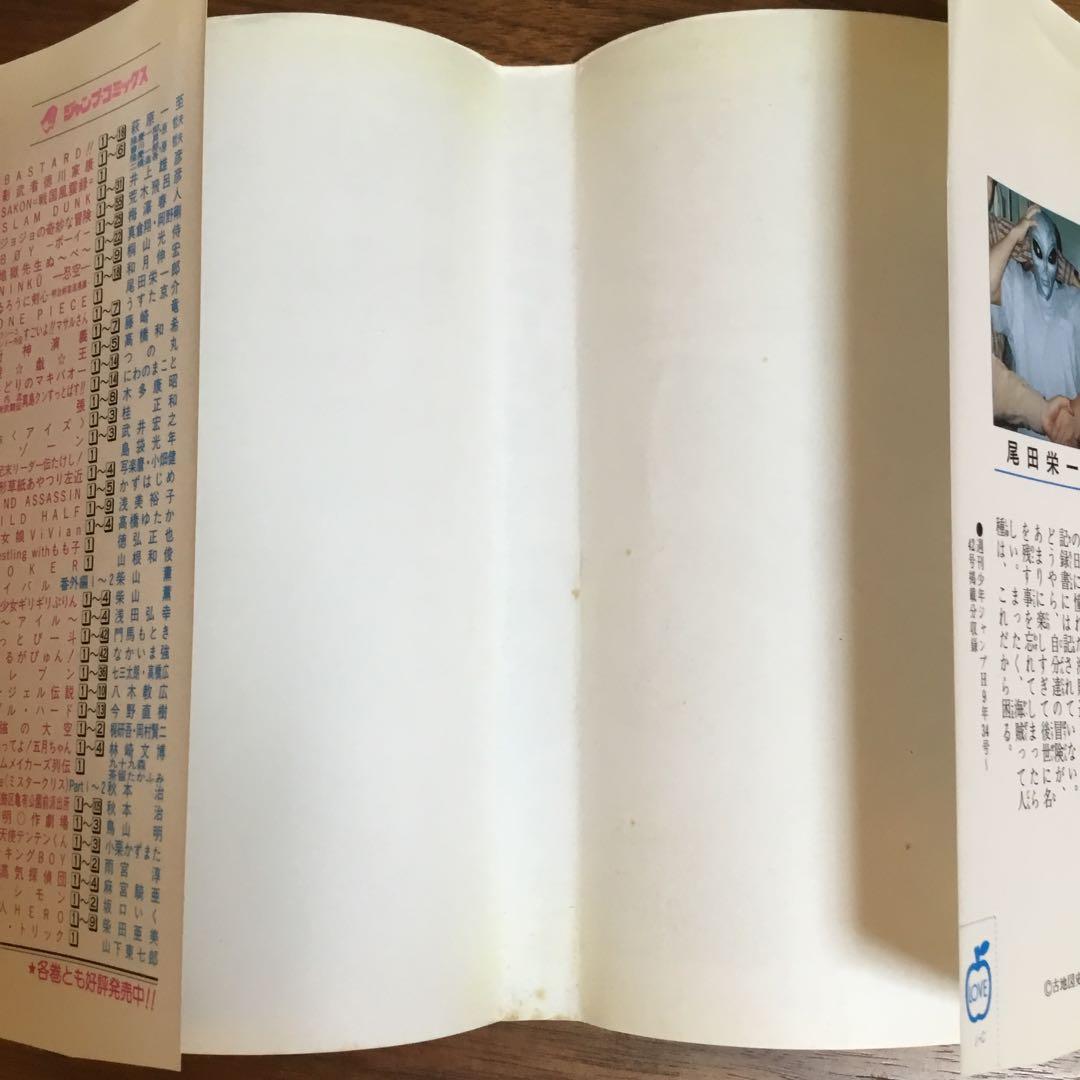 ジャンプ・コミックス
BASTARD!! 1〜18 萩原一至
影武者徳川家康 1〜6
SAKON=戦国風雲録= 1
SLAM DUNK 1〜31 井上雄彦
ジョジョの奇妙な冒険 荒木飛呂彦
BØY −ボーイ− 梅澤春人
地獄先生ぬ〜べ〜 真倉翔・岡野剛
NINKŪ −忍空− 1〜9 桐山光侍
るろうに剣心 和月伸宏
ONE PIECE 1 尾田栄一郎
すごいよ!!マサルさん 1〜7 うすた京介
神演義 1〜7 藤崎竜
戯☆王 1〜5 高橋和希
どりのマキバオー 1〜14 つの丸
真島クンすっとばす!! にわのまこと
張 木多康昭
く アイズ〉 1〜3 桂正和
ゾーン 1〜3 武井宏之
紀末リーダー伝たけし! 1 島袋光年
形草紙あやつり左近 1〜4 写楽麿・小畑健
ND ASSASSIN 1〜5 かずはじめ
ILD HALF 1〜9 浅美裕子
女娘ViVian 1〜4 高橋ゆたか
estling withもも子 1 徳弘正也
OKER 1 山根和俊
イバル 番外編 1〜2 柴山薫
少女ギリギリぷりん 1〜4 柴山薫
〜アイル〜 1〜4 浅田弘幸
っとびー斗 1〜42 門馬もとき
るがびゅん! 1〜42 なかいま強
レブン 七三太朗・高橋広
ジェル伝説 1〜10 八木教広
ル・ハード 1〜13 今野直樹
強の大空 1〜2 梶研吾・岡村賢二
ってよ!五月ちゃん 1〜4 林崎文博
ムメイカーズ列伝 1 九十九森 茶留たかふみ
(ミスタークリス) Part 1〜2 秋本治
飾区亀有公園前派出所 秋本治
明○作劇場 1〜3 鳥山明
天使テンテンくん 1〜3 小栗かずまた
ーキングBOY 1〜2 雨宮淳
高気探偵団 1〜4 麻宮騎亜
シモン 1〜2 坂口いく
人HERO 1〜9 柴田亜美
・トリック 1 山下東七郎
★各巻とも好評発売中!!
尾田栄一
記録書には記されていない。
どうやら、自分達の冒険が、
あまりに楽しすぎて後世に名
を残す事を忘れてしまったら
しい。まったく、海賊って人
種は、これだから困る。
●週刊少年ジャンプH9年34号〜
42号掲載分収録
LOVE
©古地図